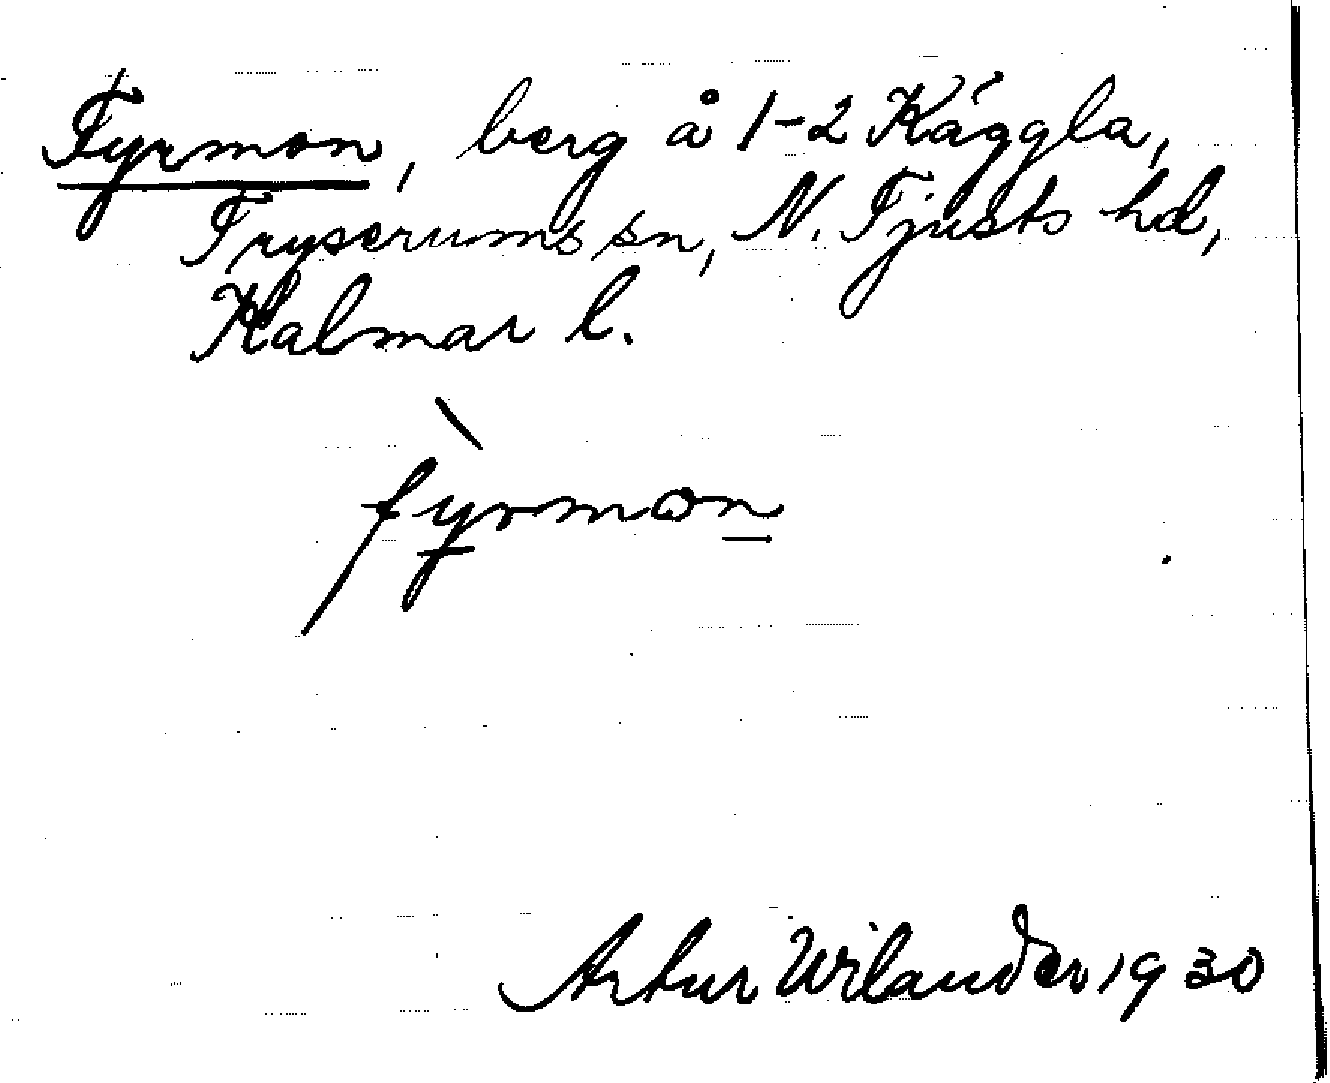 Fyrmon, berg å 1-2 Käggla,
Tryserums sn, N. Tjusts hd,
Kalmar l.
fyrmon
Artur Wilander 1930